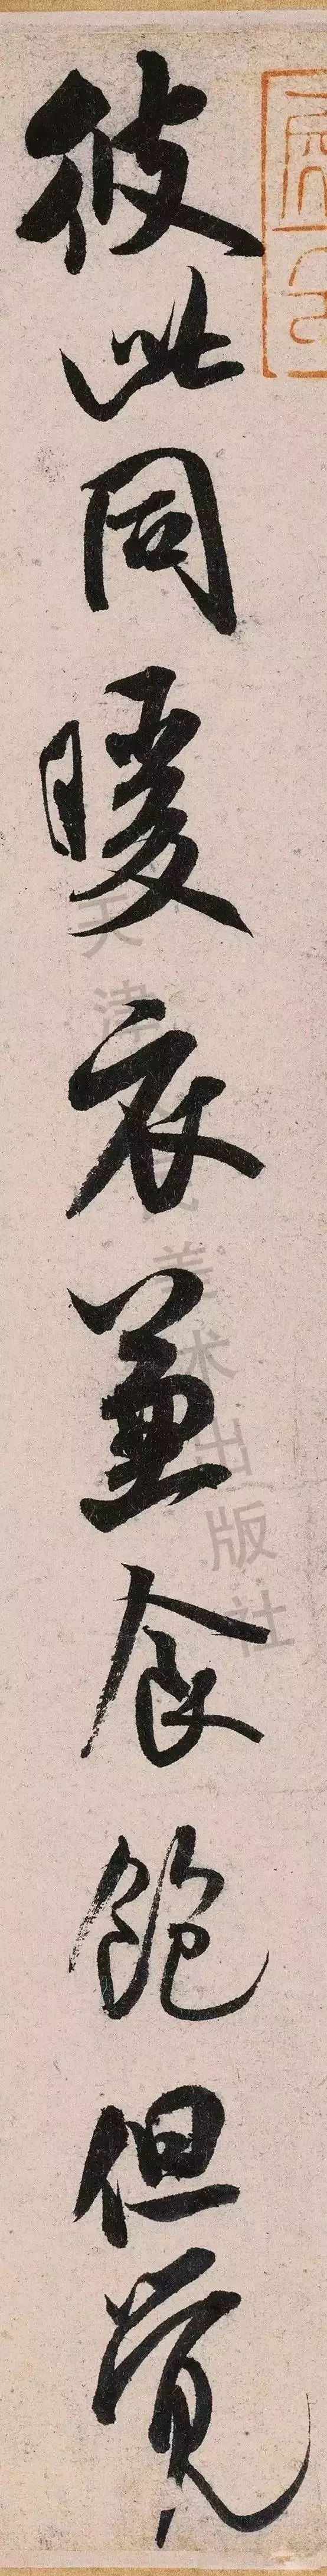 彼此同暖衣兼食飽但覺
天津人民美术出版社